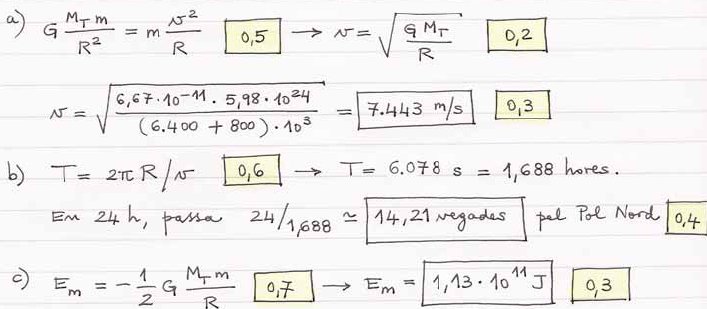 a) G M_T m / R² = m v² / R 0,5 → v = √(G M_T / R) 0,2
v = √(6,67·10⁻¹¹ · 5,98·10²⁴ / (6.400 + 800)·10³) = 7.443 m/s 0,3
b) T = 2π R/v 0,6 → T = 6.078 s = 1,688 hores.
En 24 h, passa 24/1,688 ≃ 14,21 vegades pel Pol Nord 0,4
c) E_m = -1/2 G M_T m / R 0,7 → E_m = 1,13·10¹¹ J 0,3